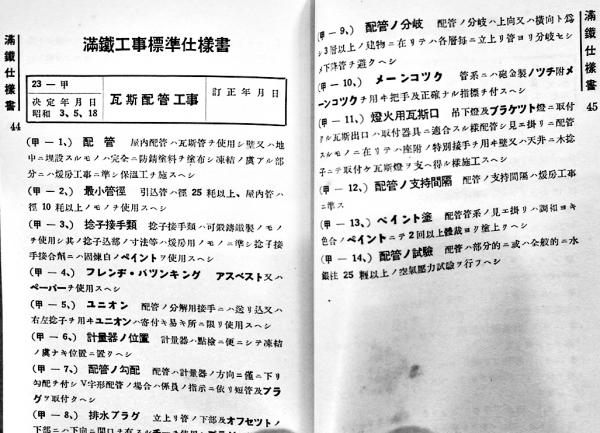 滿鐵仕樣書
44
滿鐵工事標準仕樣書
23 — 甲
決定年月日
昭和 3、5、18
瓦斯配管工事
訂正年月日
(甲 — 1、) 配管 屋內配管ハ瓦斯管ヲ使用シ壁又ハ地
中ニ埋設スルモノハ完全ニ防錆塗料ヲ塗布シ凍結ノ虞アル部
分ニハ煖房工事ニ準シ保溫工ヲ施スヘシ
(甲 — 2、) 最小管徑 引込管ハ徑 25 粍以上、屋內管ハ
徑 10 粍以上ノモノヲ使用スヘシ
(甲 — 3、) 捻子接手類 捻子接手類ハ可鍛鑄鐵製ノモノ
ヲ使用シ其ノ捻子込部ノ寸法等ハ煖房用ノモノニ準シ捻子接
手接合劑ニハ固煉白ノペイントヲ使用スヘシ
(甲 — 4、) フレンヂ・パツンキング アスベスト又ハ
ペーパーヲ使用スヘシ
(甲 — 5、) ユニオン 配管ノ分解用接手ニハ送リ込又ハ
右左捻子ヲ用ヰユニオンハ寄付キ易キ所ニ限リ使用スヘシ
(甲 — 6、) 計量器ノ位置 計量器ハ點檢ニ便ニシテ凍結
ノ虞ナキ位置ニ置クヘシ
(甲 — 7、) 配管ノ勾配 配管ハ計量器ノ方向ニ僅ニ下リ
勾配ヲ付シ V字形配管ノ場合ハ係員ノ指示ニ依リ短管及プラ
グヲ取付タヘシ
(甲 — 8、) 排水プラグ 立上リ管ノ下部及オフセツトノ
下部ニハ下向ニ開口ヲ有スル
(甲 — 9、) 配管ノ分岐 配管ノ分岐ハ上向又ハ橫向ト爲
シ3層以上ノ建物ニ在リテハ各層每ニ立上リ管ヨリ分岐セシ
メ下降管ヲ避クヘシ
(甲 — 10、) メーンコツク 管系ニハ砲金製ノツチ附メ
ーンコツクヲ用ヰ把手及正確ナル指標ヲ付スヘシ
(甲 — 11、) 燈火用瓦斯口 吊下燈及ブラケツト燈ニ取付
クル瓦斯出口ハ取付器具ニ適合スル樣配管シ見エ掛リニ配管
スルモノニ在リテハ座附ノ特別接手ヲ用ヰ壁又ハ天井ニ木捻
子ニテ取付ケ瓦斯燈ヲ支ヘ得ル樣施工スヘシ
(甲 — 12、) 配管ノ支持間隔 配管ノ支持間隔ハ煖房工事
ニ準ス
(甲 — 13、) ペイント塗 配管管系ノ見エ掛リハ調和ヨキ
色合ノペイントニテ2回以上體裁ヨク塗上クヘシ
(甲 — 14、) 配管ノ試驗 配管ハ部分的ニ或ハ全般的ニ水
銀柱 25 糎以上ノ空氣壓力試驗ヲ行フヘシ
滿鐵仕樣書
45